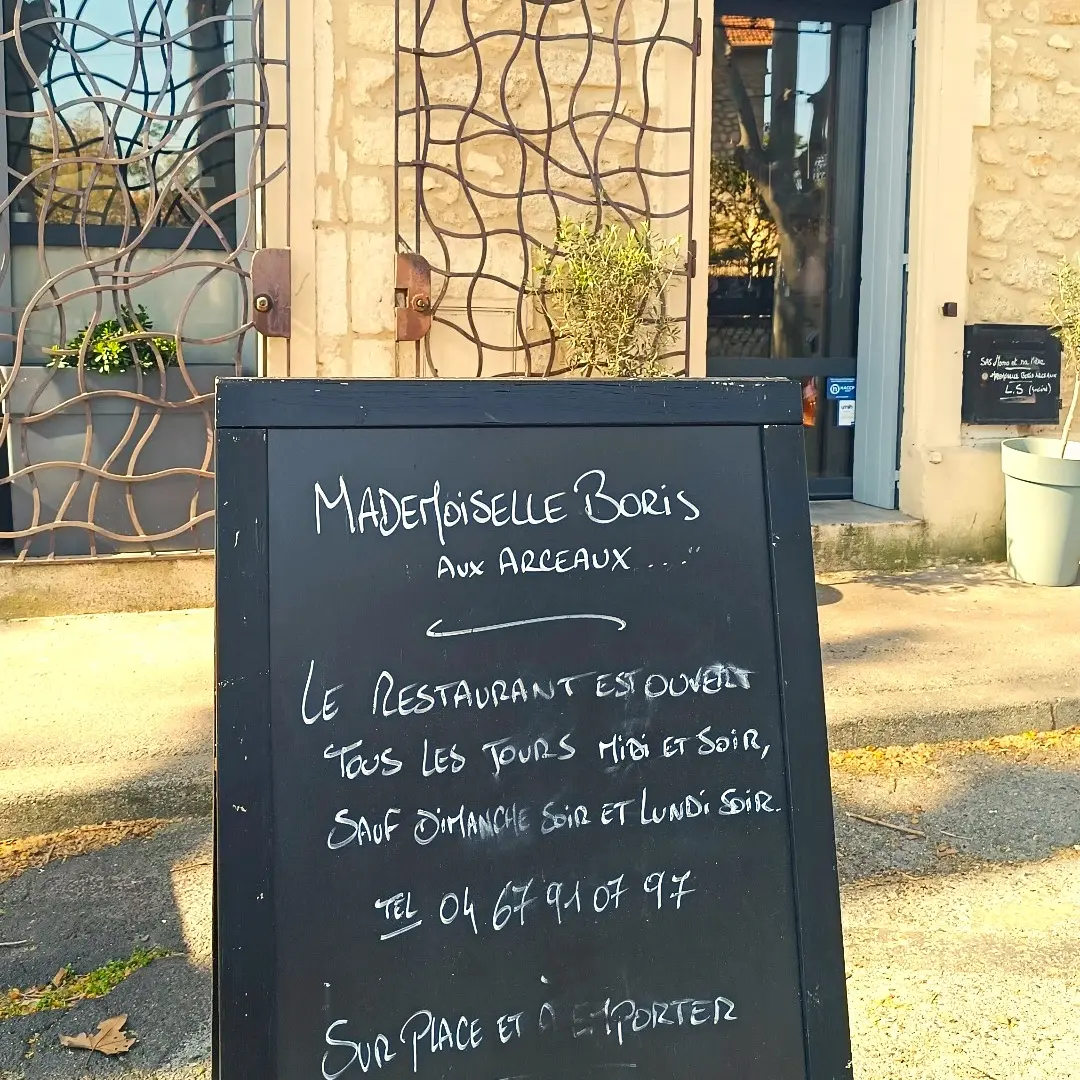 MADEMOISELLE BORIS
AUX ARCEAUX ...."
LE RESTAURANT EST OUVERT
TOUS LES JOURS MIDI ET SOIR,
SAUF DIMANCHE SOIR ET LUNDI SOIR.
TEL 04 67 91 07 97
SUR PLACE ET À EMPORTER
SAS Momo et na
MADEMOISELLE BORIS ARCEAUX
L.S
HACCP
umih